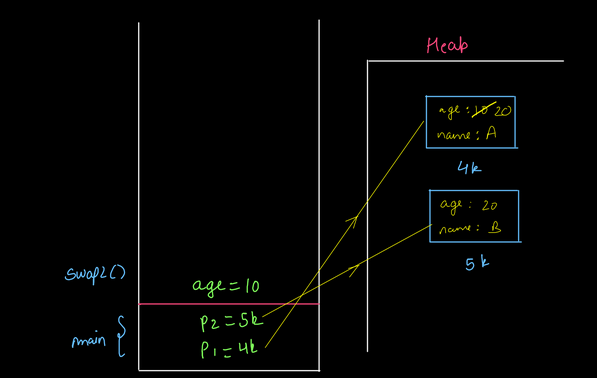 Heap
age : 10 20
name : A
4k
age : 20
name : B
5k
swap2()
age = 10
main {
P2 = 5k
P1 = 4k